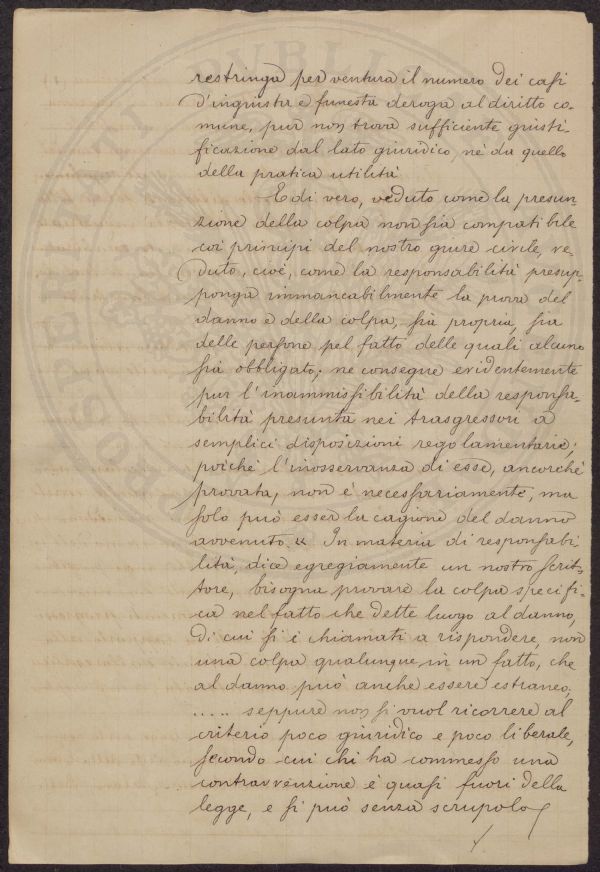 restringa per ventura il numero dei casi
d'ingiusta e funesta deroga al diritto co-
mune, pur non trova sufficiente giusti-
ficazione dal lato giuridico, nè da quello
della pratica utilità
E di vero, veduto come la presun-
zione della colpa non sia compatibile
coi principi del nostro giure civile, ve-
duto, cioè, come la responsabilità presup-
ponga immancabilmente la prova del
danno e della colpa, sia propria, sia
delle persone pel fatto delle quali alcuno
sia obbligato; ne consegue evidentemente
pur l'inammissibilità della responsa-
bilità presunta nei trasgressori a
semplici disposizioni regolamentarie;
poichè l'inosservanza di esse, ancorchè
provata, non è necessariamente, ma
solo può esser la cagione del danno
avvenuto. « In materia di responsabi-
lità, dice egregiamente un nostro scrit-
tore, bisogna provare la colpa specifi-
ca nel fatto che dette luogo al danno,
di cui si è chiamati a rispondere, non
una colpa qualunque, in un fatto, che
al danno può anche essere estraneo;
..... seppure non si vuol ricorrere al
criterio poco giuridico e poco liberale,
secondo cui chi ha commesso una
contravvenzione è quasi fuori della
legge, e si può senza scrupolo